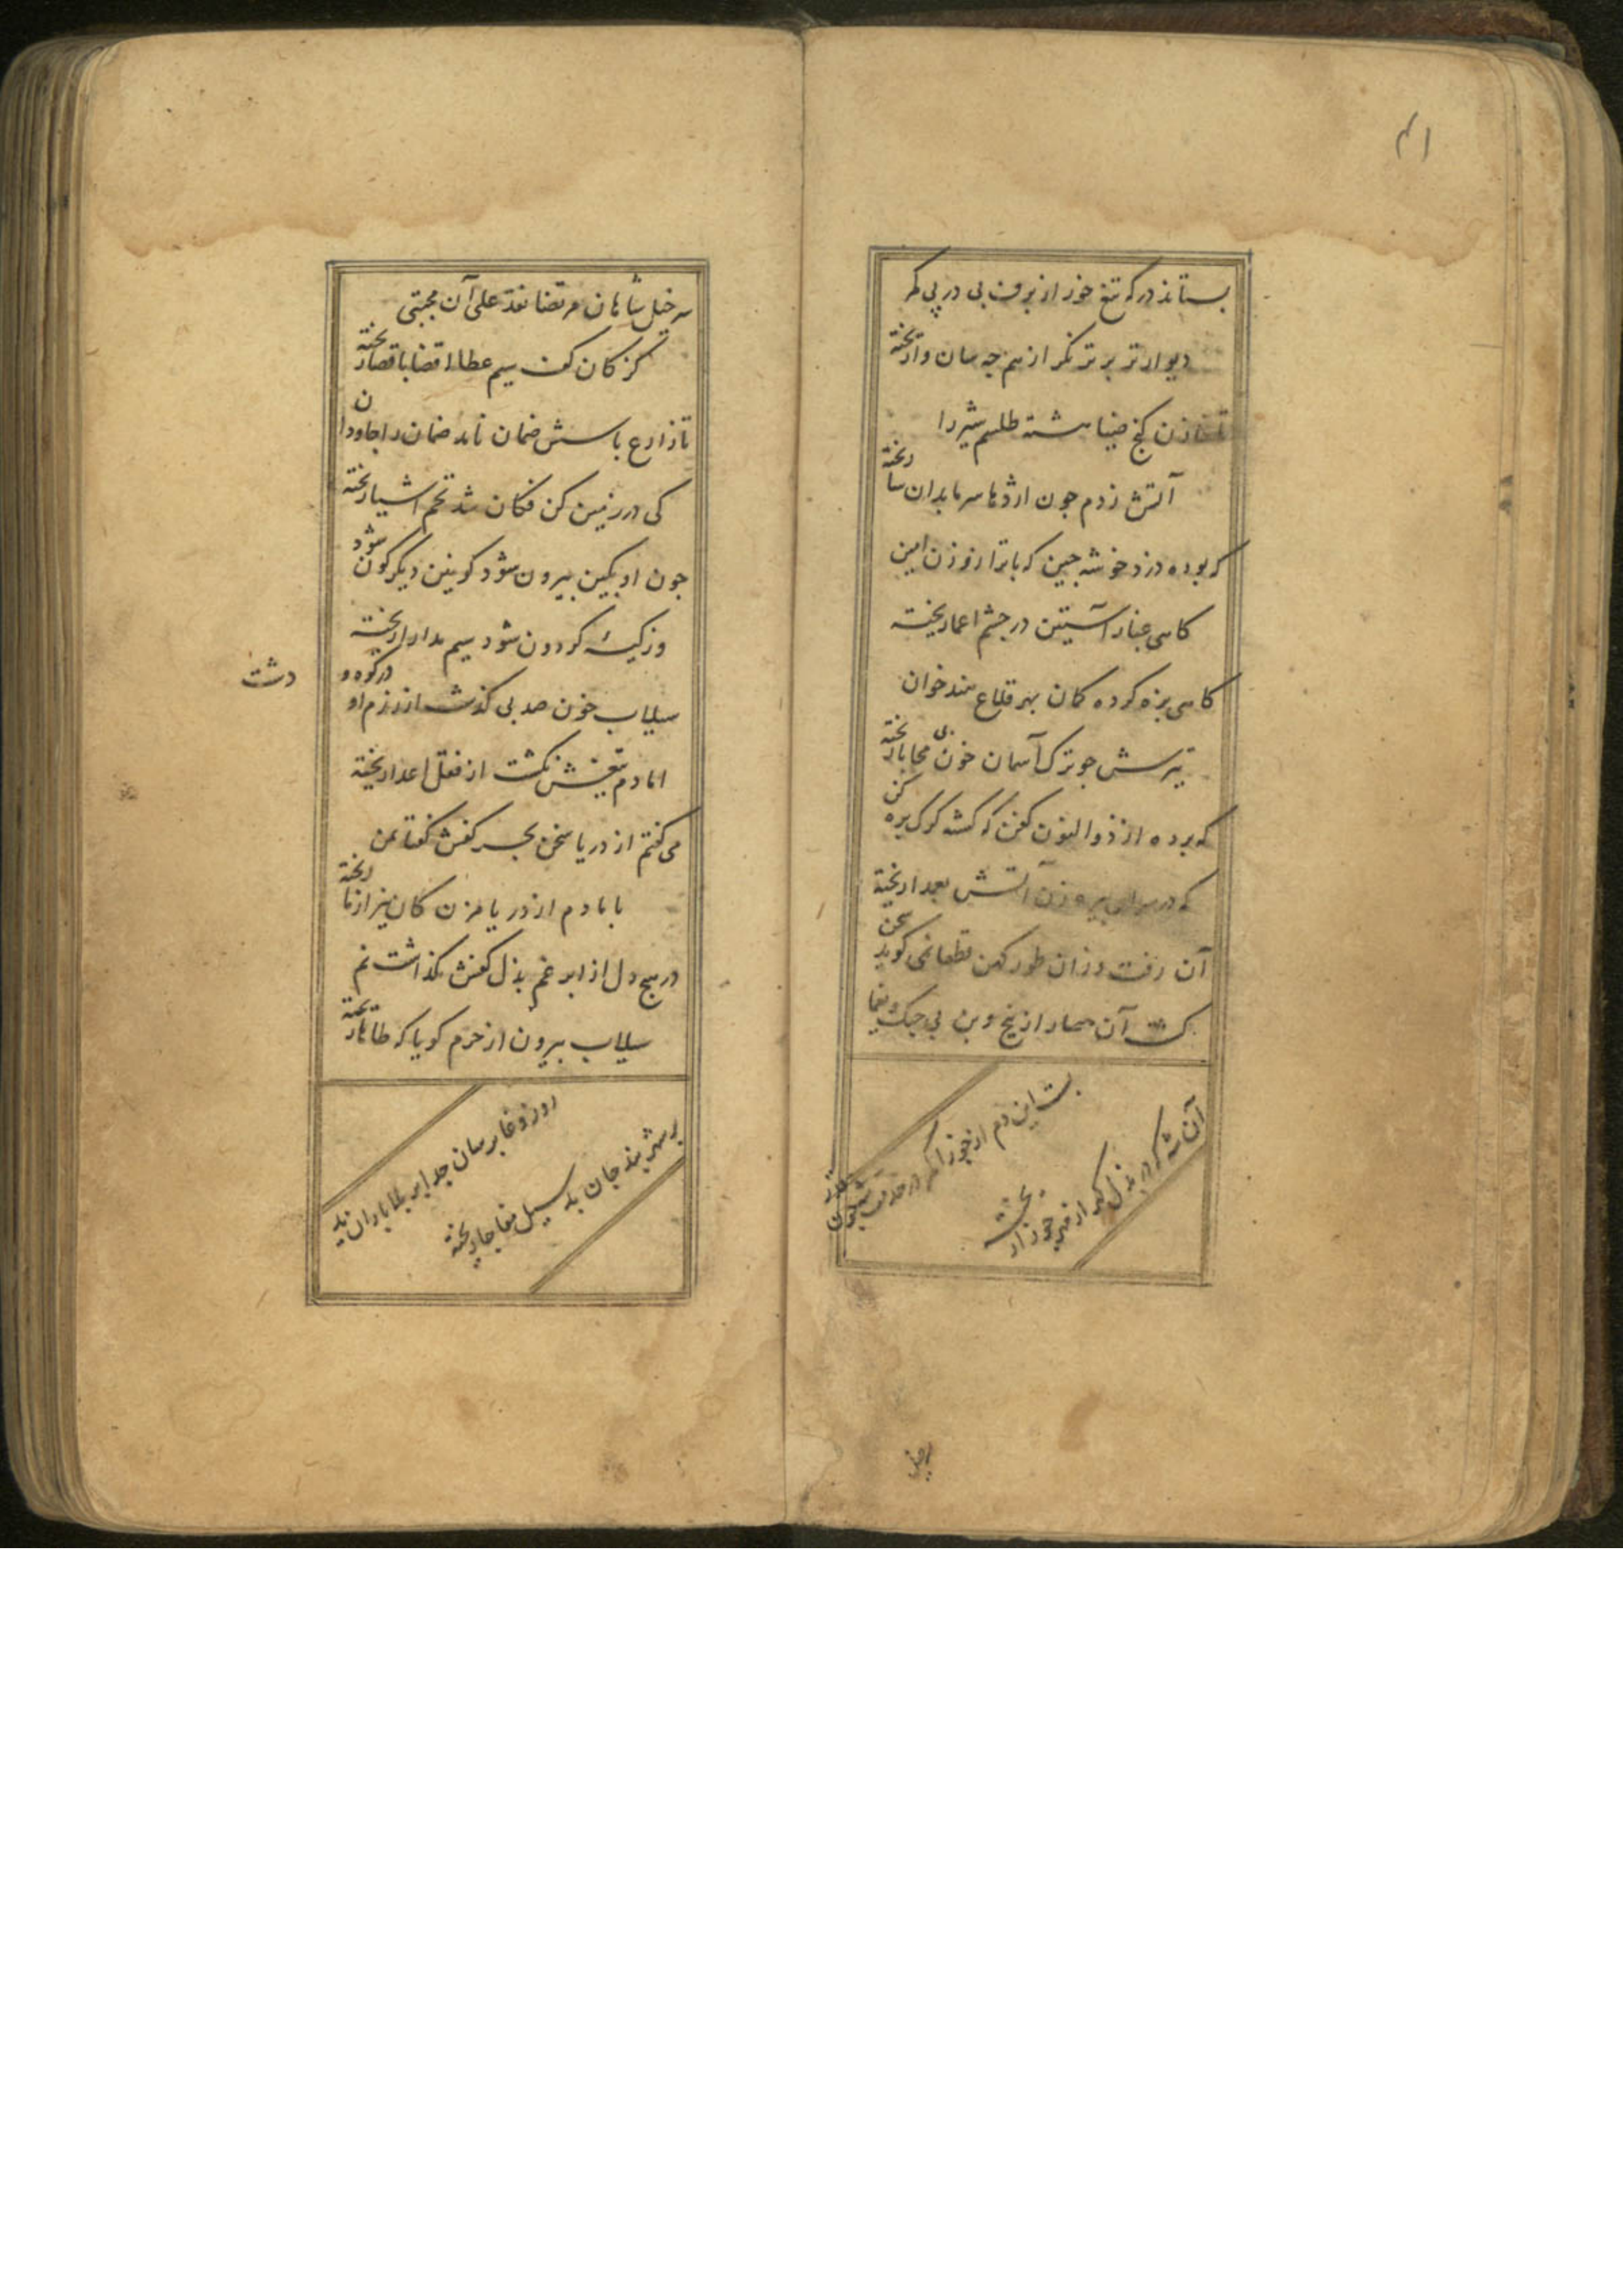 ۴۱
بستاند در که تیغ خور از برف بی در پی کمر
دیوار تر بر تر نگر از هم چه سان وا ریخته
کنج ضیا هشته طلسم شیر را
آتش زدم چون اژدها سرما بدان سا ریخته
که بوده دزد خوشه چین که با ترازو زن امین
کاهی غبار آستین در چشم اعما ریخته
کاهی بزه کرده کمان بهر قلاع هند خوان
تیرش چو ترک آسمان خون بی محابا ریخته
که برده از ذوالنون کفن که کشه کرک بره کن
که در سرای پیره زن آتش بعمدا ریخته
آن رفت وزان طور کهن قطعا نمی کوید سخن
کشت آن حصار از بیخ و بن بی جنک و یغما
بست این دم از جوزا کمر در خدمت
آن شه که در بذل کهر از فیر جوزا ریخته
سر خیل شاهان مرتضا نقد علی آن مجتبی
کز کان کف سیم عطا اقضا باقصا ریخته
تا زارع باسش ضمان نابد ضمان را جاودان
کی در زمین کن فکان شد تخم اشیا ریخته
چون او بکین بیرون شود کونین دیکر کون شود
وز کیسهٔ کردون شود سیم مدارا ریخته
سیلاب خون صد پی کذشت از رزم او در کوه و دشت
اما دم تیغش نکشت از فعل اعدا ریخته
می کفتم از دریا سخن بحر کفش کفتا بمن
با ما دم از دریا مزن کان نیز از ما ریخته
در هیچ دل از ابر غم بذل کفش نکذاشت نم
سیلاب بیرون از حرم کویا که طاها ریخته
روز وغا برسان جد ابر بلا باران
بر شهر بند جان بد سیل مفاجا ریخته